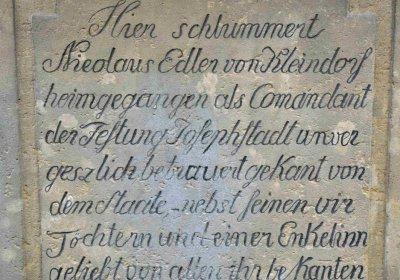 Hier schlummert
Nicolaus Edler von Kleindorf
heimgegangen als Comandant
der Festung Josephstadt unver
geszlich betrauert gekant von
dem Staate, nebst seinen vir
Töchtern und einer Enkelinn
geliebt von allen ihr be kanten